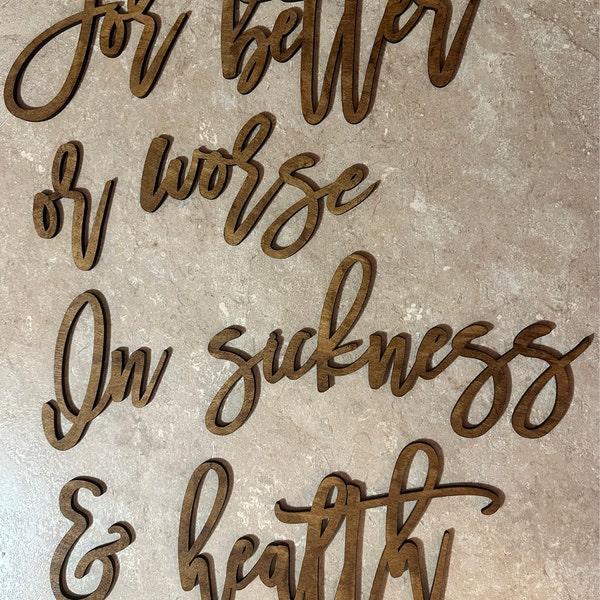 for better
or worse
In sickness
& health